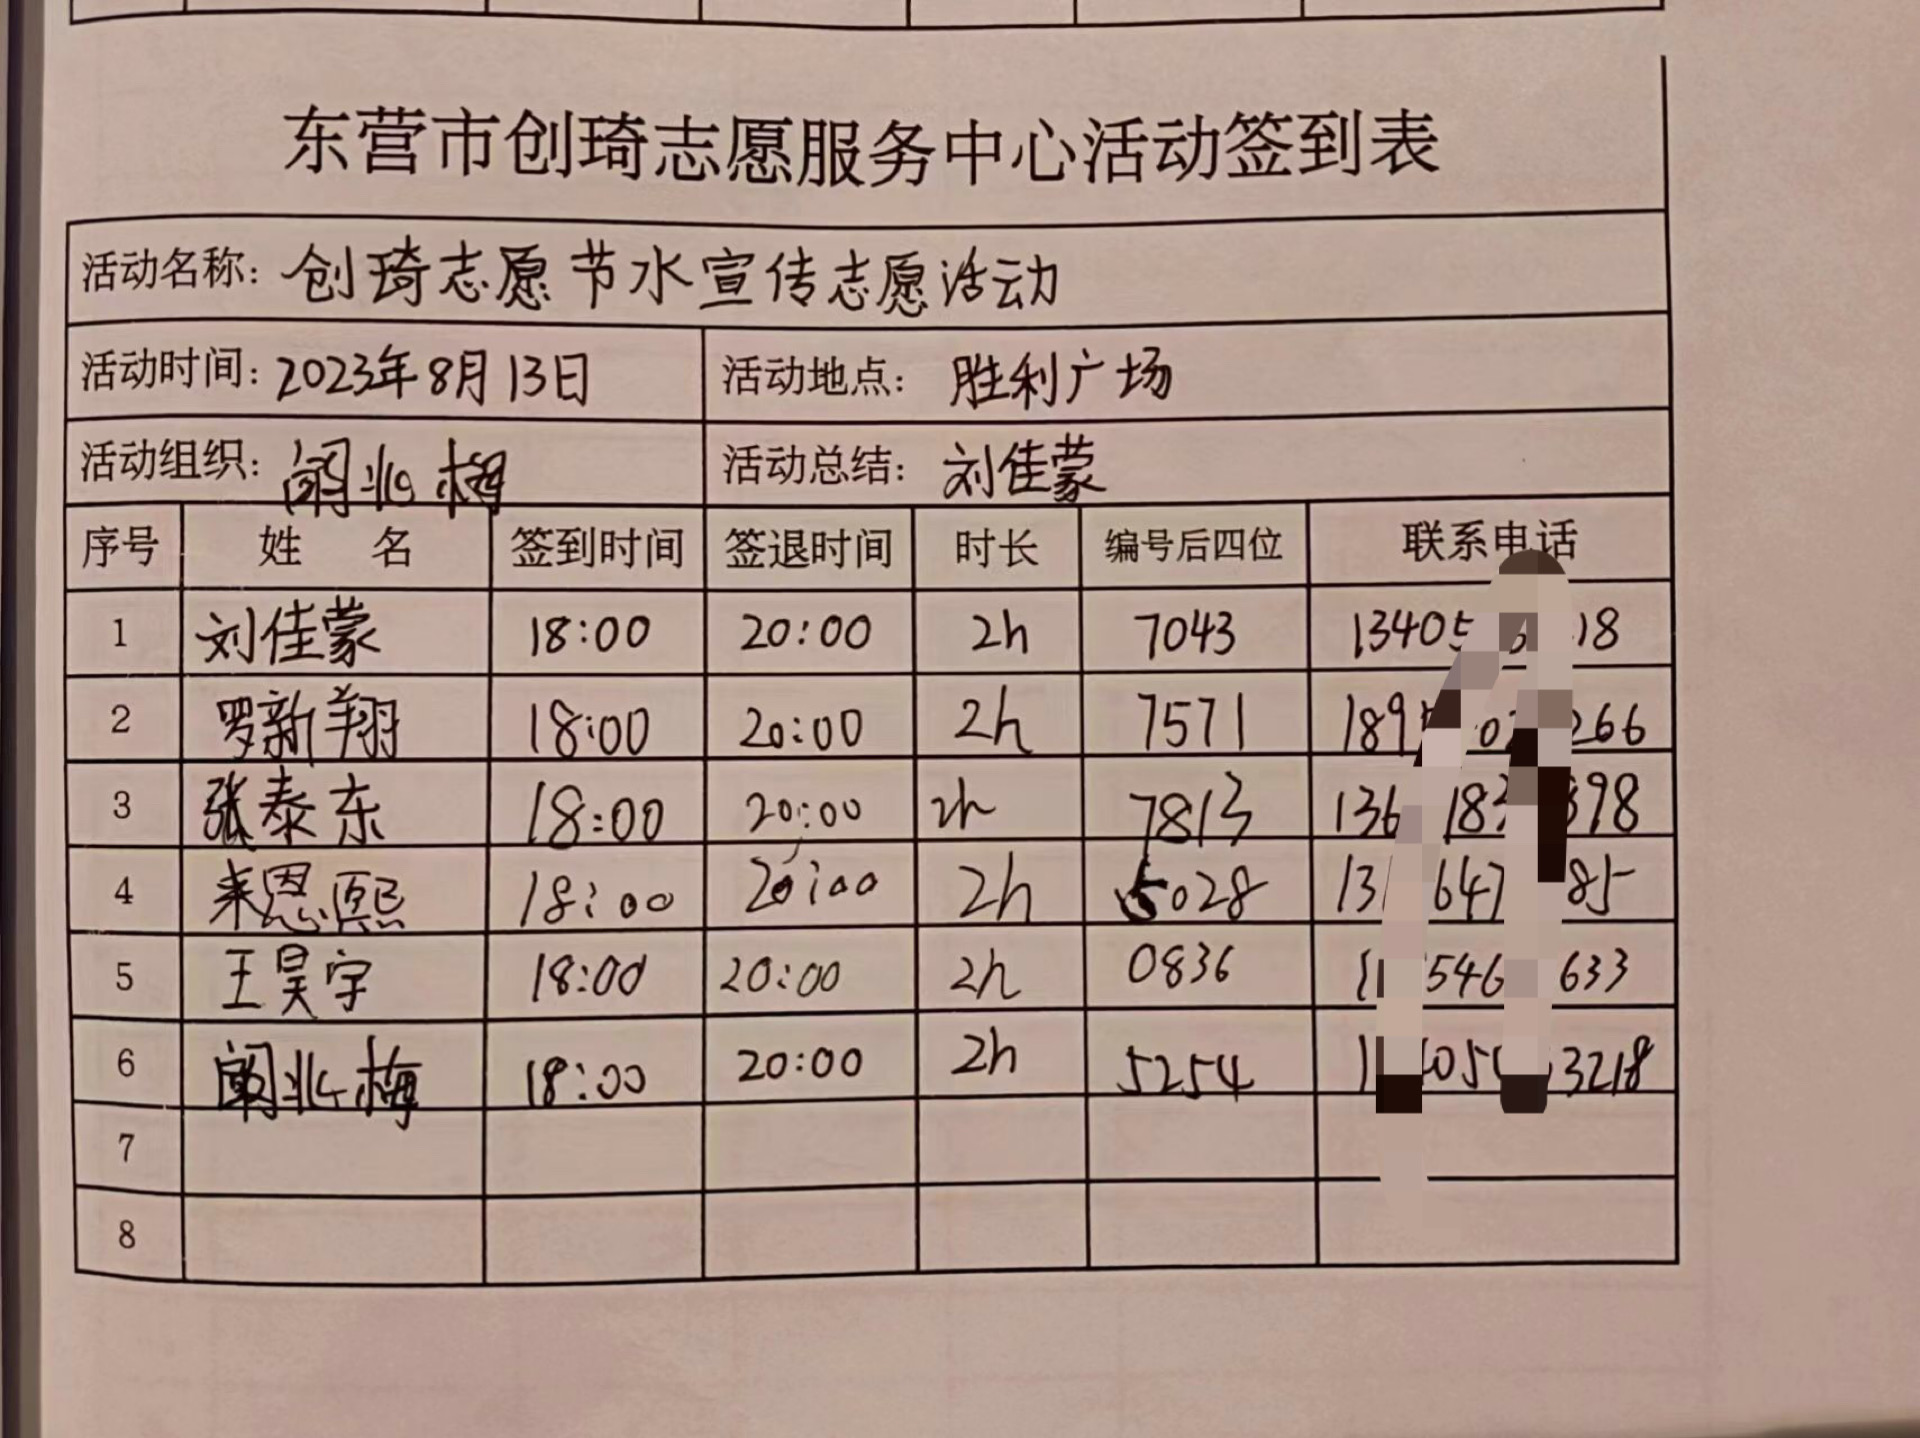 东营市创琦志愿服务中心活动签到表
活动名称：创琦志愿节水宣传志愿活动
活动时间：2023年8月13日 活动地点：胜利广场
活动组织：阚兆梅 活动总结：刘佳蒙
序号 姓 名 签到时间 签退时间 时长 编号后四位 联系电话
1 刘佳蒙 18:00 20:00 2h 7043 13405 18
2 罗新翔 18:00 20:00 2h 7571 189 266
3 张泰东 18:00 20:00 2h 7813 136 183 898
4 来恩熙 18:00 20:00 2h 5028 13 647 85
5 王昊宇 18:00 20:00 2h 0836 1 546 633
6 阚兆梅 18:00 20:00 2h 5254 1 05 3218
7
8